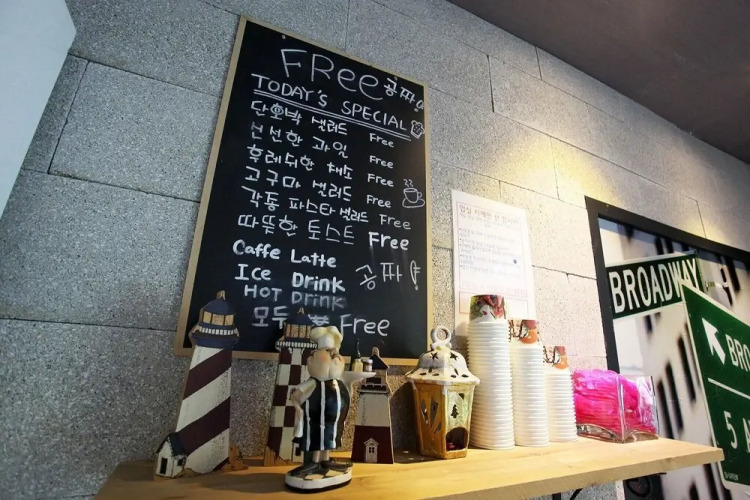 FREE 공짜!
TODAY'S SPECIAL
단호박 샐러드 Free
신선한 과일 Free
후레쉬한 채소 Free
고구마 샐러드 Free
각종 파스타 샐러드 Free
따뜻한 토스트 Free
Caffe Latte
Ice Drink 공짜!
HOT Drink
모두 Free
BROADWAY
BRO
5 A